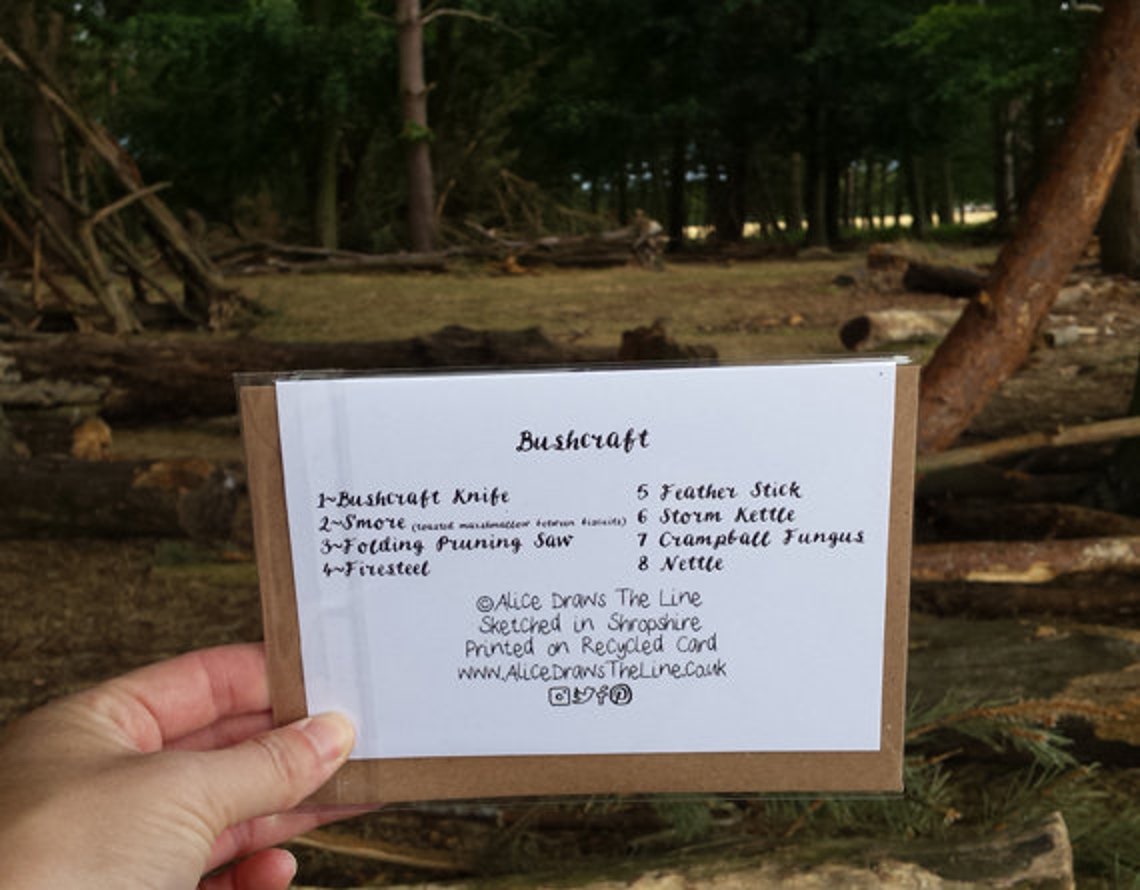 Bushcraft
1~Bushcraft Knife
2~S'more (toasted marshmallow between biscuits)
3~Folding Pruning Saw
4~Firesteel
5 Feather Stick
6 Storm Kettle
7 Crampball Fungus
8 Nettle
©Alice Draws The Line
Sketched in Shropshire
Printed on Recycled Card
www.AliceDrawsTheLine.co.uk